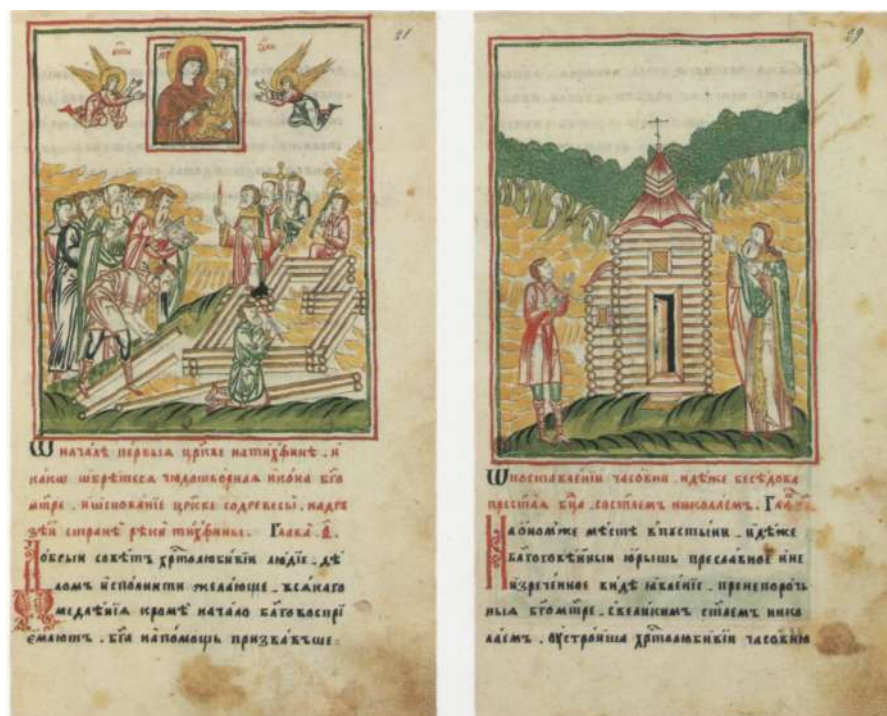 21
Ѿ началѣ первыѧ црⷦ҇ве на тихѳинѣ . и
како ѡбрѣтесѧ чюдотворнаѧ икона бг҃о
мт҃ре . и ѡснованїе црⷦ҇ве со древесы . на дрꙋ
зѣи странѣ реки тихѳины . Глава .
Добрыи совѣтъ хрⷭ҇толюбивїи людїе . дѣ
ломъ исполнити желающе . всѧкаго
медлѣнїѧ кроме начало бл҃говоспрї
емаютъ . бг҃а на помощь призвавъше :
29
Ѿ поставленїи часовни . идѣже бесѣдова
прест҃аѧ бц҃а . со ст҃лемъ николаемъ .
На ономже мѣсте в пꙋстыни . идѣже
бл҃гоговѣиныи юрышь преславное и не
изреченное видѣ ꙗвленїе . пренепорочь
ныѧ бг҃омт҃ре . с великимъ ст҃лемъ нико
лаемъ . ᲂустроиша хрⷭ҇толюбивїи часовню